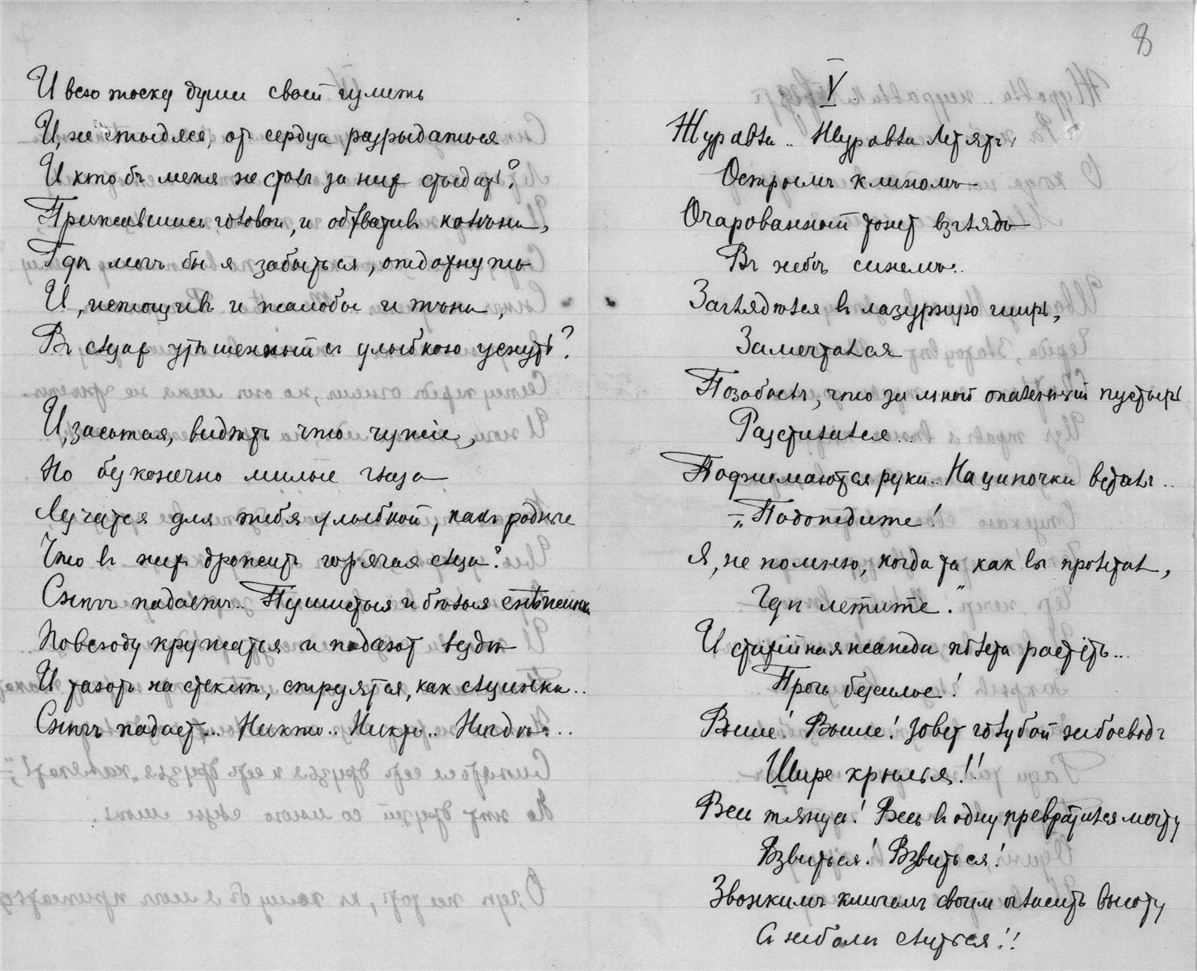 И всю тоску души своей излить
И, не стыдясь, от сердца разрыдаться
И кто бъ меня не сталъ за них стыдить?
Прижавшись головой, и обхватив колѣни,
Гдѣ могъ бы я забыться, отдохнуть
И, истощивъ и жалобы и пѣни,
Въ слезах утѣшенный съ улыбкою уснуть?
И, засыпая, видѣть что чужіе,
Но безконечно милые глаза
Лучатся для тебя улыбкой, какъ родные
Что в них дрожитъ горячая слеза?
Снѣгъ падаетъ.. Пушистыя и бѣлыя снѣжинки
Повсюду кружатся и падают вездѣ
И тают на стеклѣ, струятся, как слезинки..
Снѣгъ падает... Никто.. Никто.. Нигдѣ...
8
V
Журавли.. Журавли летятъ
Острымъ клиномъ
Очарованный тонет взглядъ
Въ небѣ синемъ..
Заглядѣлся в лазурную ширь,
Замечтался
Позабылъ, что за мной опаленный пустырь
Разстилался...
Поднимаются руки.. На цыпочки всталъ..
— „Подождите!
Я, не помню, когда то, как вы пролетал,
Гдѣ летите?"
И стихійная жажда полёта растётъ...
Прочь безсилье!
Выше! Выше! Зовет голубой небосводъ
Шире крылья!!
Весь тянусь! Весь в одну превратился мечту
Взвиться! Взвиться!
Звонкимъ кличемъ своим огласить высоту
С небомъ слиться!!